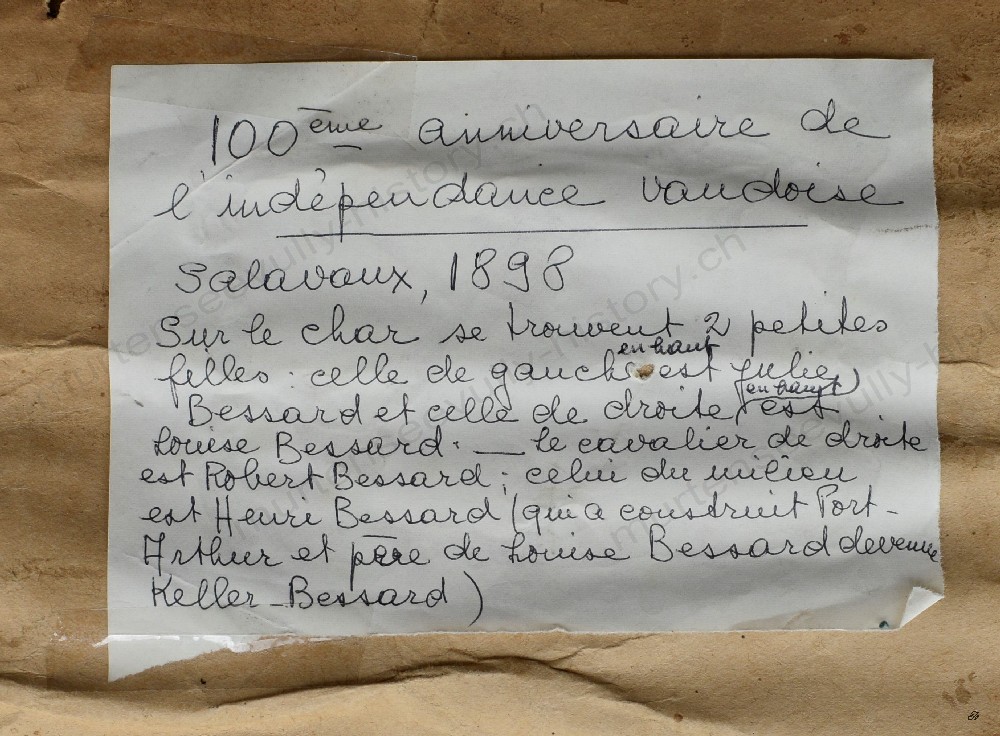 100ème anniversaire de
l'indépendance vaudoise
Salavaux, 1898
Sur le char se trouvent 2 petites
en haut
filles : celle de gauche est Julie
en haut)
Bessard et celle de droite, est
Louise Bessard. — Le cavalier de droite
est Robert Bessard ; celui du milieu
est Henri Bessard (qui a construit Port-
Arthur et père de Louise Bessard devenue
Keller-Bessard)
murtensee-vully-history.ch